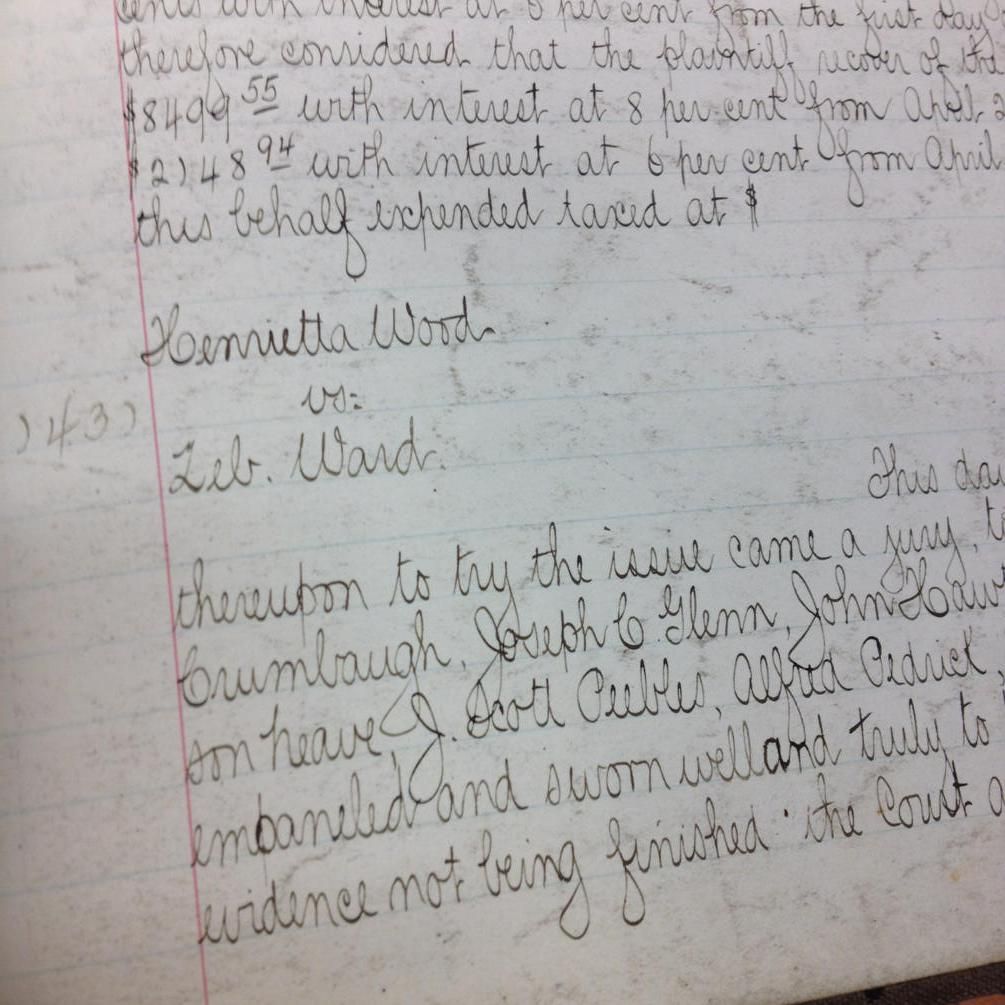 cents with interest at 6 per cent from the first day
therefore considered that the plaintiff recover of the
$8499 55 with interest at 8 per cent from April 2
$2748 94 with interest at 6 per cent from April
this behalf expended taxed at $
Henrietta Wood
vs:
1431
Zeb. Ward.
This day
thereupon to try the issue came a jury, to
Crumbaugh, Joseph C. Glenn, John Haw
son heave, J. Scott Peebles, Alfred Pedrick,
empaneled and sworn well and truly to
evidence not being finished the Court a